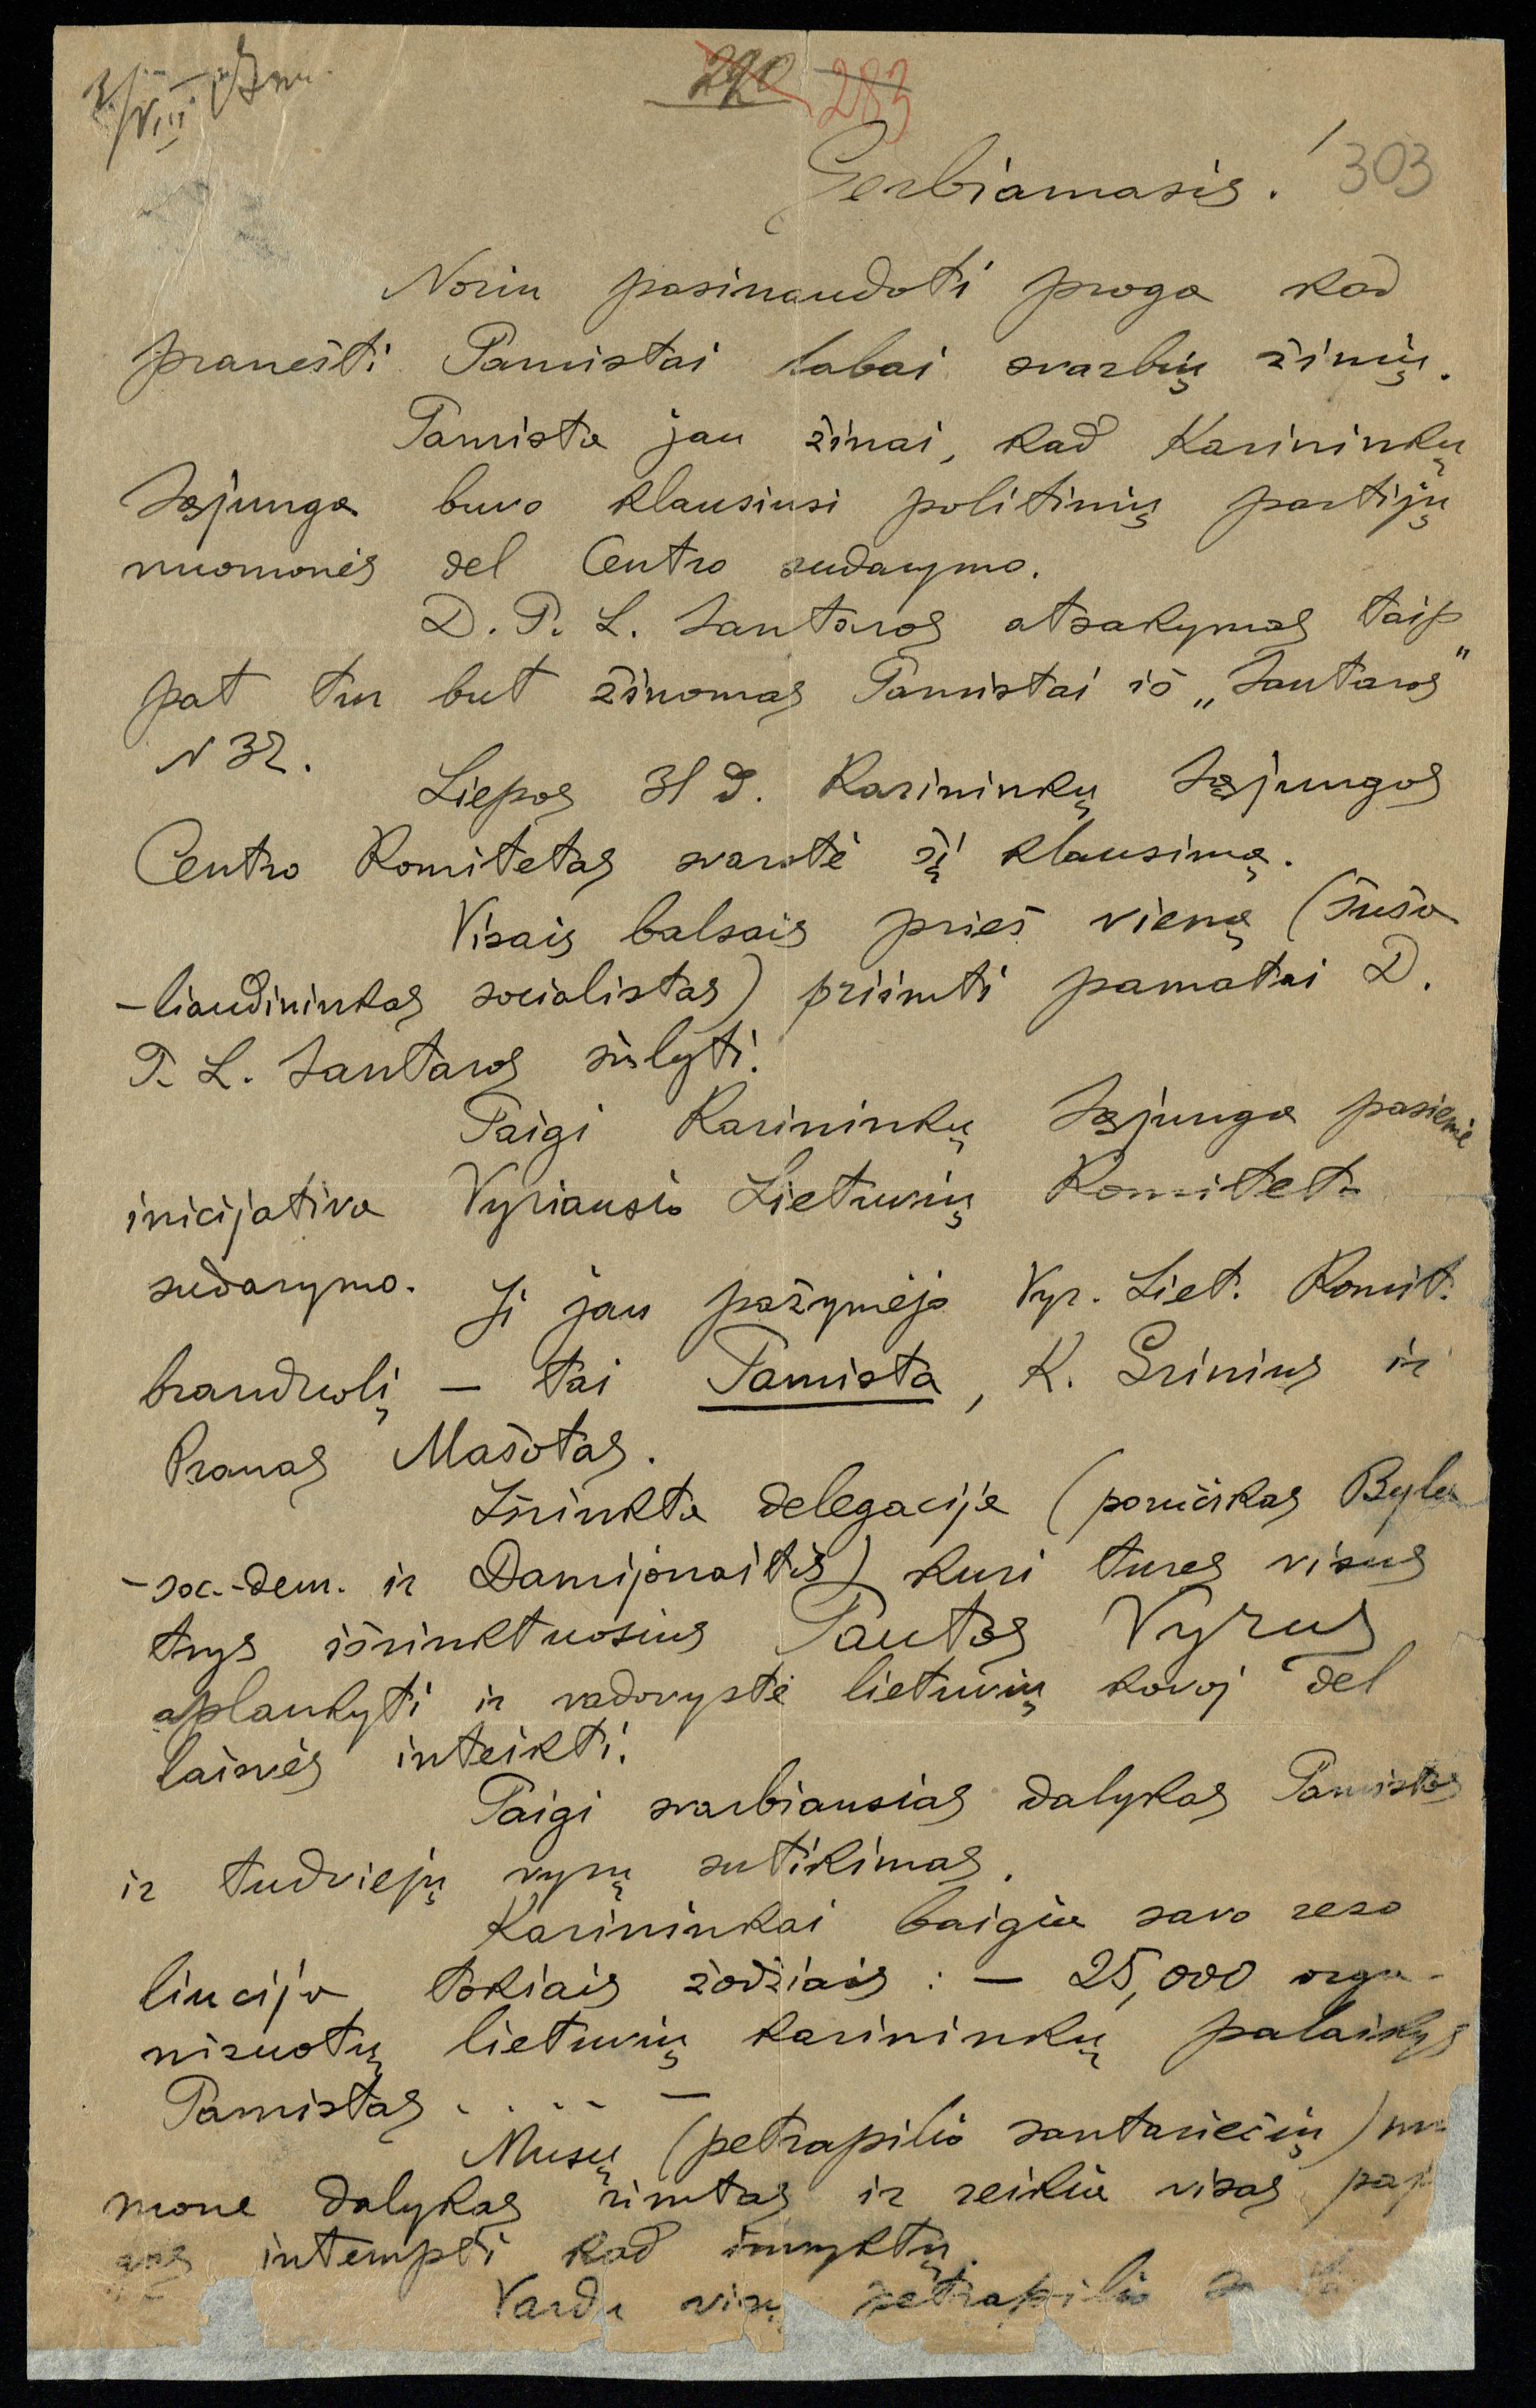 220 283
303
Gerbiamasis.
Noriu pasinaudoti proga kad
pranešti Tamistai labai svarbių žinių.
Tamista jau žinai, kad Karininkų
Sąjunga buvo klausiusi politinių partijų
nuomonės del Centro sudarymo.
D. T. L. Santaros atsakymas taip
pat tur but žinomas Tamistai iš „Santaros"
N 32.
Liepos 31 d. Karininkų Sąjungos
Centro Komitetas svarstė šį klausimą.
Visais balsais prieš vieną (Šuša
-liaudininkas socialistas) priimti pamatai D.
T. L. Santaros siulyti.
Taigi Karininkų Sąjunga pasiemė
inicijativa Vyriausio Lietuvių Komiteto
sudarymo.
Ji jau pažymėjo Vyr. Liet. Komit.
branduolį – tai Tamista, K. Grinius ir
Pranas Mašotas.
Išrinkta delegacija (poručikas Byla
-soc.-dem. ir Damijonaitis) kuri tures visus
trys išrinktuosius Tautos Vyrus
aplankyti ir vadovystė lietuvių kovoj del
laisvės inteikti.
Taigi svarbiausias dalykas Tamistos
ir tudviejų vyrų sutikimas.
Karininkai baigia savo rezo
liucija tokiais žodžiais: – 25,000 orga-
nizuotų lietuvių karininkų palaikys
Tamistas . . . . . –
Musų (petrapilio santariečių)
mone dalykas rimtas ir reikia visas
intempti kad invyktų.
Vardu visų petrapilio